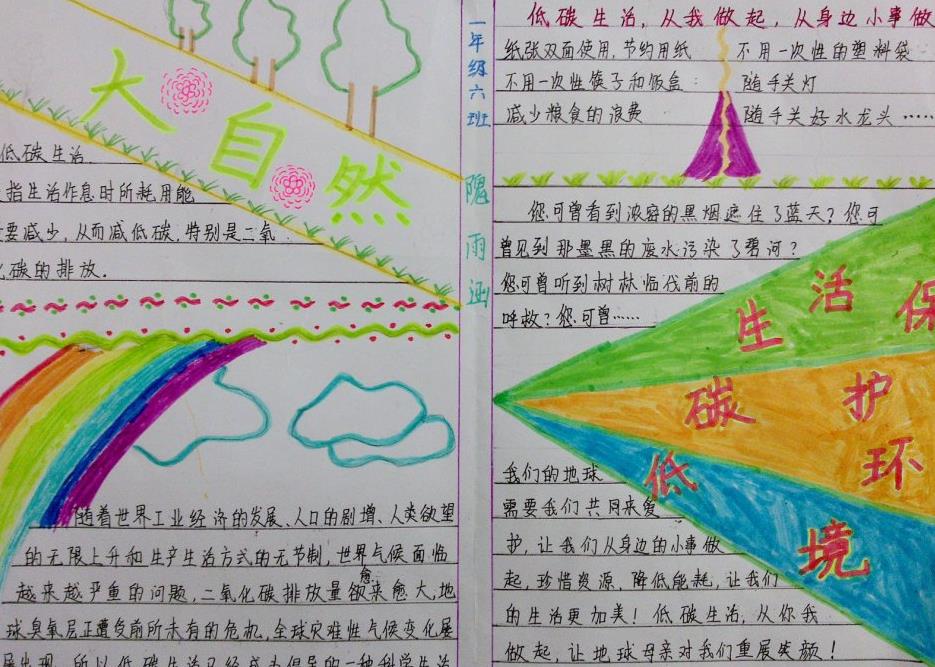 大自然
低碳生活
指生活作息时所耗用能
要减少,从而减低碳,特别是二氧
碳的排放.
随着世界工业经济的发展、人口的剧增、人类欲望
的无限上升和生产生活方式的无节制,世界气候面临
越来越严重的问题,二氧化碳排放量愈来愈大,地
球臭氧层正遭受前所未有的危机,全球灾难性气候变化屡
屡出现,所以低碳生活已经成为倡导的一种科学生活
一年级六班
隗雨涵
低碳生活,从我做起,从身边小事做
纸张双面使用,节约用纸
不用一次性筷子和饭盒:
减少粮食的浪费
不用一次性的塑料袋
随手关灯
随手关好水龙头……
您可曾看到浓密的黑烟遮住了蓝天?您可
曾见到那墨黑的废水污染了碧河?
您可曾听到树林临伐前的
呼救?您可曾……
低碳生活保护环境
我们的地球
需要我们共同来爱
护,让我们从身边的小事做
起,珍惜资源、降低能耗,让我们
的生活更加美!低碳生活,从你我
做起,让地球母亲对我们重展笑颜!